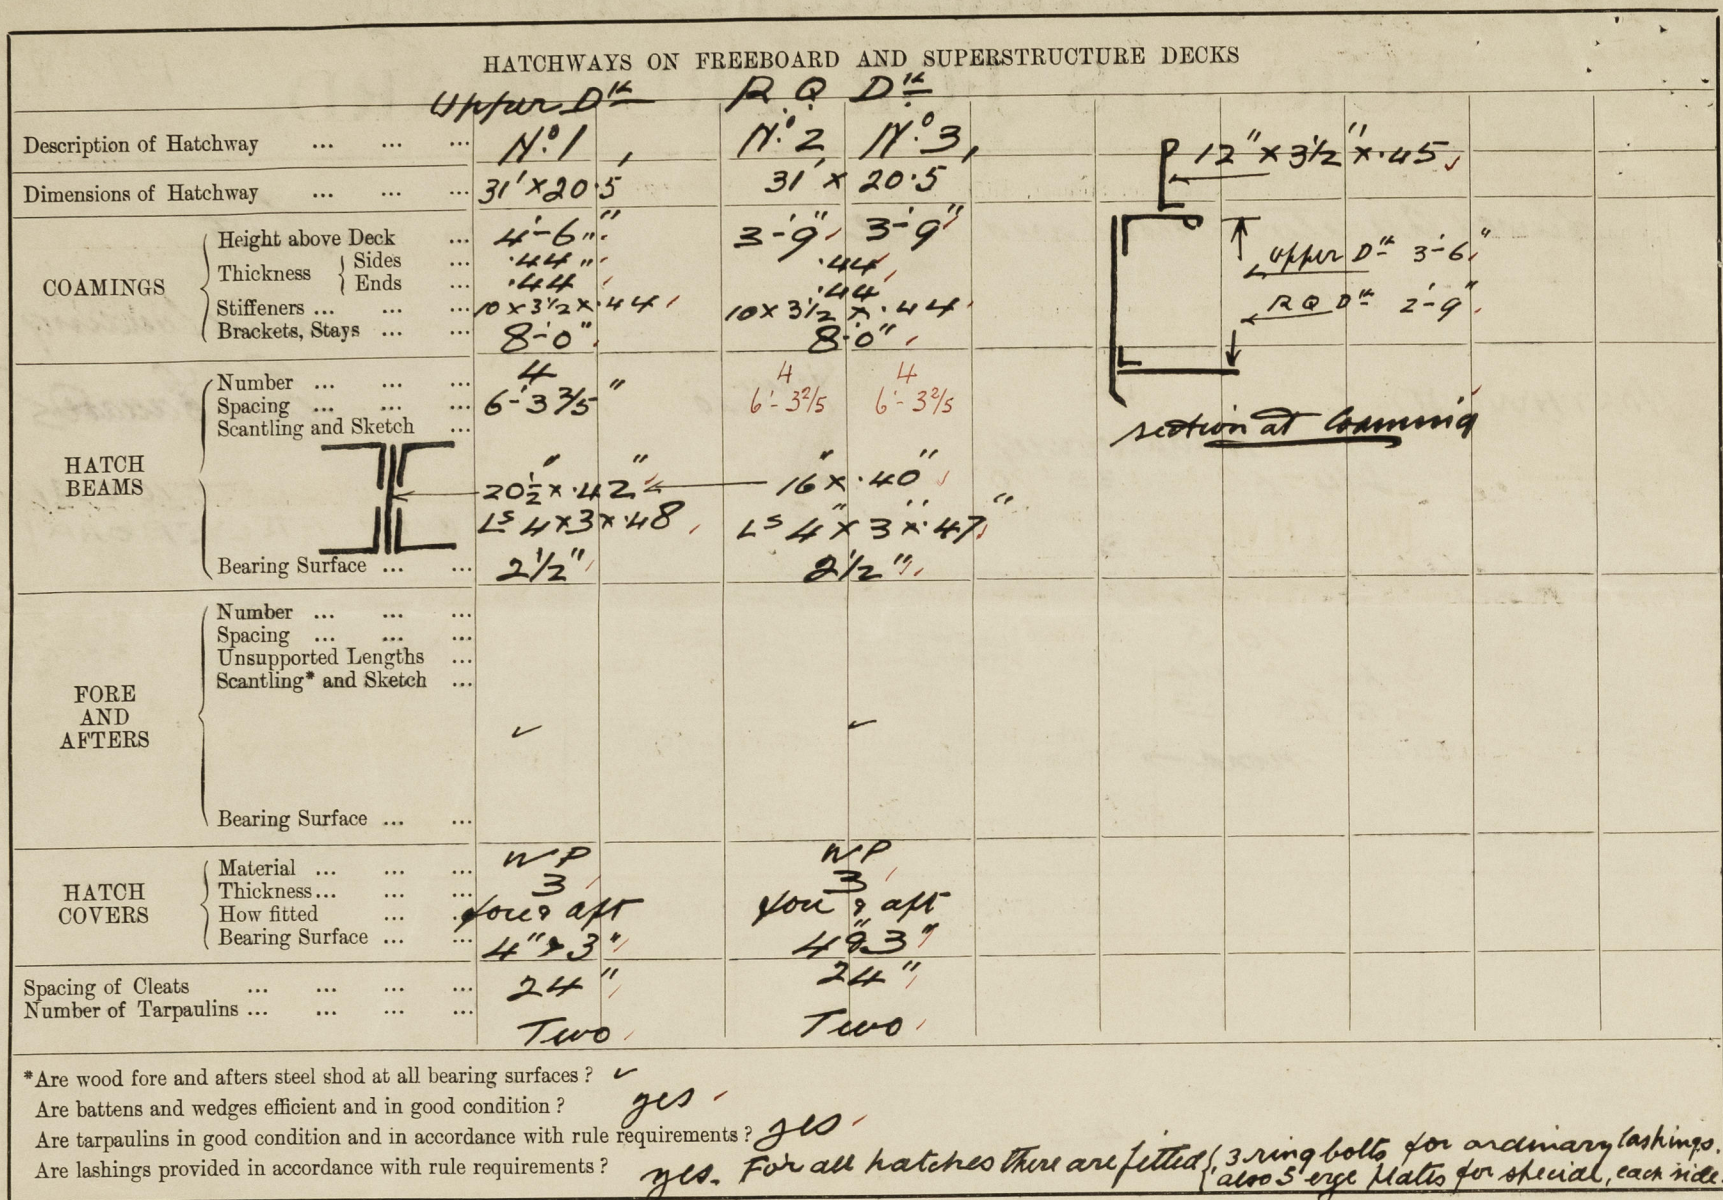 HATCHWAYS ON FREEBOARD AND SUPERSTRUCTURE DECKS
Upper Dk R Q Dk
Description of Hatchway ... ... ... No. 1, No. 2, No. 3, 12" x 3½" x .45
Dimensions of Hatchway ... ... ... 31' x 20.5 31' x 20.5
COAMINGS
Height above Deck ... 4'-6" 3'-9" 3'-9"
Thickness { Sides ... .44" .44
Ends ... .44 .44
Stiffeners ... ... ... 10 x 3½ x .44 10 x 3½ x .44
Brackets, Stays ... ... 8'-0" 8'-0"
Upper Dk 3'-6"
R Q Dk 2'-9"
section at Coaming
HATCH BEAMS
Number ... ... ... 4 4 4
Spacing ... ... ... 6'-3 2/5" 6'-3 2/5 6'-3 2/5
Scantling and Sketch ...
20½" x .42" 16" x .40"
Ls 4 x 3 x .48 Ls 4" x 3" x .47"
Bearing Surface ... ... 2½" 2½"
FORE AND AFTERS
Number ... ... ...
Spacing ... ... ...
Unsupported Lengths ...
Scantling* and Sketch ...
✓ ✓
Bearing Surface ... ...
HATCH COVERS
Material ... ... ... WP WP
Thickness... ... ... 3 3
How fitted ... ... fore & aft fore & aft
Bearing Surface ... ... 4" & 3" 4" & 3"
Spacing of Cleats ... ... ... ... 24" 24"
Number of Tarpaulins ... ... ... ... Two Two
*Are wood fore and afters steel shod at all bearing surfaces ? ✓
Are battens and wedges efficient and in good condition ? yes
Are tarpaulins in good condition and in accordance with rule requirements ? yes
Are lashings provided in accordance with rule requirements ? yes. For all hatches there are fitted { 3 ring bolts for ordinary lashings.
also 5 eye plates for special, each side.